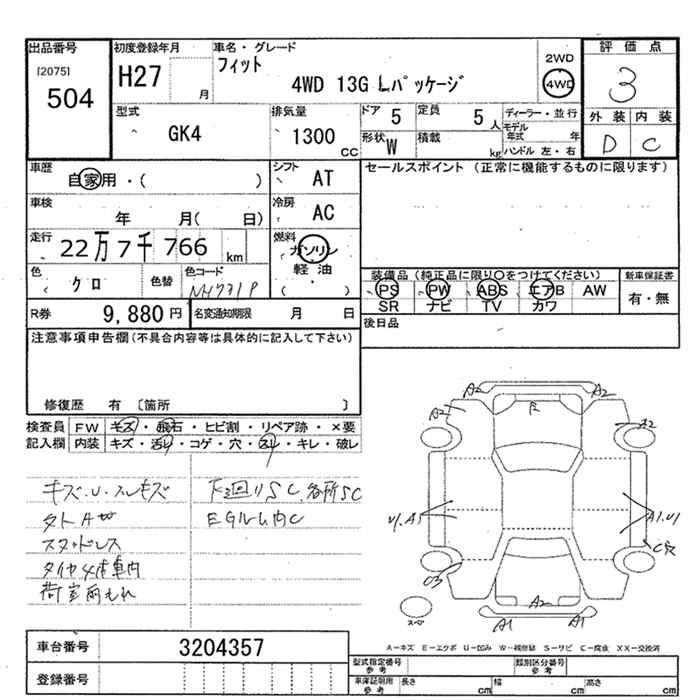 出品番号 初度登録年月 車名・グレード 評価点
[2075] 504
H27 月
フィット
4WD 13G Lパッケージ
2WD
4WD
3
外装 内装
D C
型式 GK4
排気量 1300 CC
ドア 5 定員 5 人
ディーラー・並行
形状 W 積載 kg
モデル年式 年
ハンドル 左・右
車歴 自家用・( )
シフト AT
セールスポイント (正常に機能するものに限ります)
車検 年 月( 日)
冷房 AC
走行 22万7千766 km
燃料 ガソリン
軽油
( ・ )
色 クロ 色替 色コード NH731P
装備品 (純正品に限り○をつけてください) 新車保証書
PS PW ABS エアB AW 有・無
SR ナビ TV カワ
R券 9,880円 名変通知期限 月 日
後日品
注意事項申告欄(不具合内容等は具体的に記入して下さい)
修復歴 有 〔箇所 〕
検査員 FW キズ・飛石・ヒビ割・リペア跡・×要
記入欄 内装 キズ・汚レ・コゲ・穴・スレ・キレ・破レ
キズ.U.スレキズ 下廻りSC,各所SC
EGルーム内C
スタッドレス
タイヤ4本車内
荷室雨もれ
A2 R A2
A2 A2
U1.A1 A1.U1
C穴
A2
A1 A1
スペア
A－キズ E－エクボ U－凹み W－補修跡 S－サビ C－腐食 XX－交換済
車台番号 3204357
登録番号
型式指定番号 参考 類別区分番号 参考
車庫証明用 参考 長さ cm 幅 cm 高さ cm